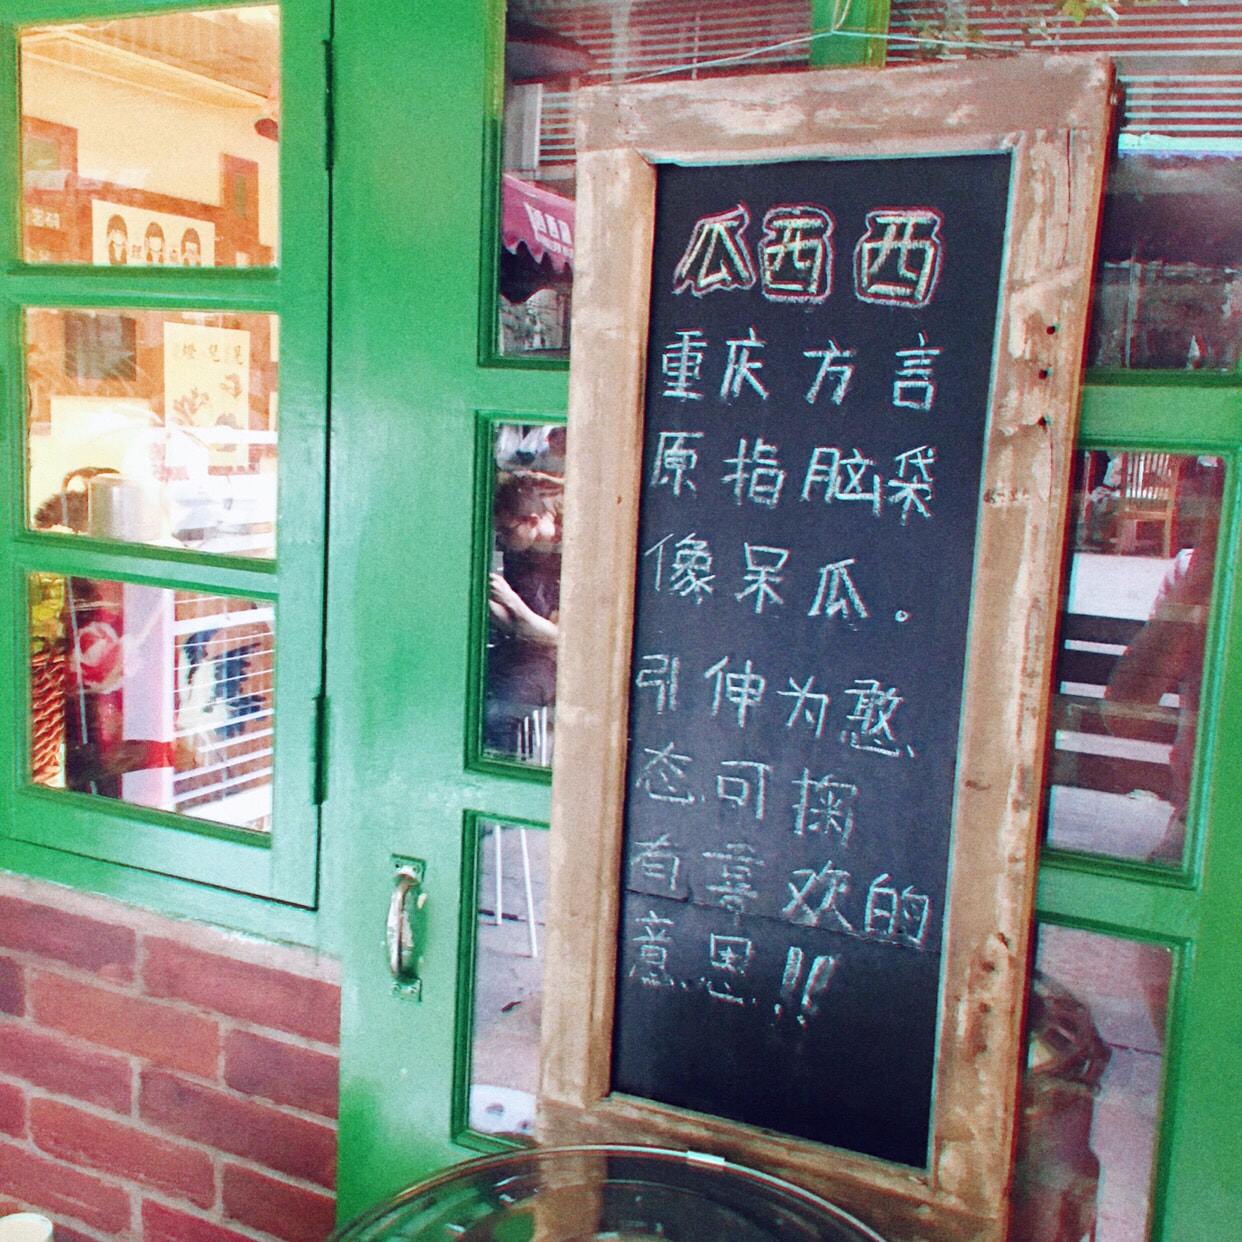 瓜西西
重庆方言
原指脑袋
像呆瓜。
引伸为憨
态可掬
有喜欢的
意思!!